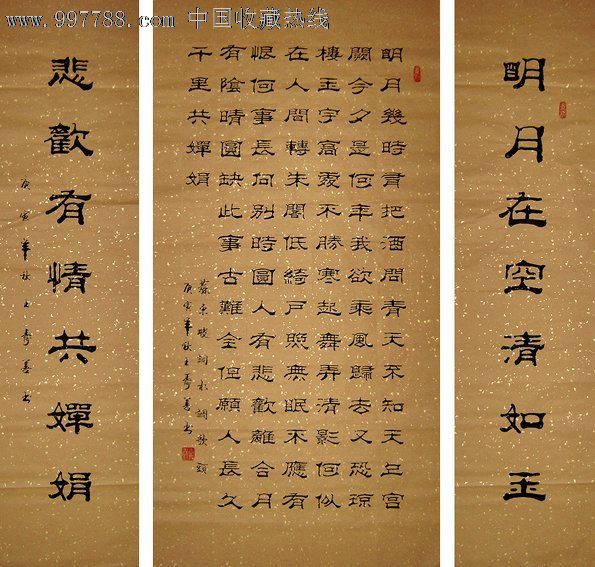 www.997788.com 中国收藏热线
明月在空清如玉
明月幾時有把酒問青天不知天上宮
闕今夕是何年我欲乘風歸去又恐瓊
樓玉宇高處不勝寒起舞弄清影何似
在人間轉朱閣低綺戶照無眠不應有
恨何事長向別時圓人有悲歡離合月
有陰晴圓缺此事古難全但願人長久
千里共嬋娟
蘇東坡詞水調歌頭
庚寅年秋王善书
悲歡有情共嬋娟
庚寅年秋王善书